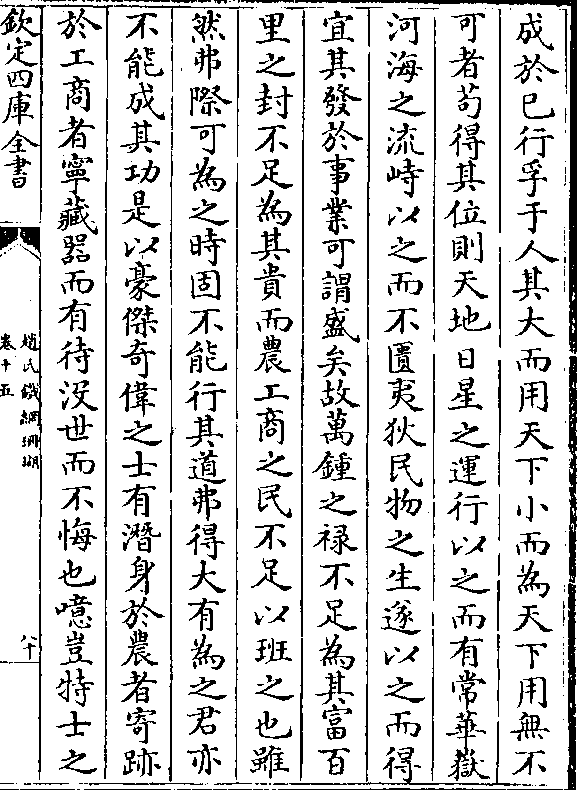 成於己行孚于人其大而用天下小而為天下用無不
可者苟得其位則天地日星之運行以之而有常華嶽
河海之流峙以之而不匱夷狄民物之生遂以之而得
宜其發於事業可謂盛矣故萬鍾之禄不足為其富百
里之封不足為其貴而農工商之民不足以班之也雖
然弗際可為之時固不能行其道弗得大有為之君亦
不能成其功是以豪傑奇偉之士有潛身於農者寄跡
於工商者寧藏器而有待没世而不悔也噫豈特士之
欽定四庫全書
趙氏鐵網珊瑚
卷十五
八十